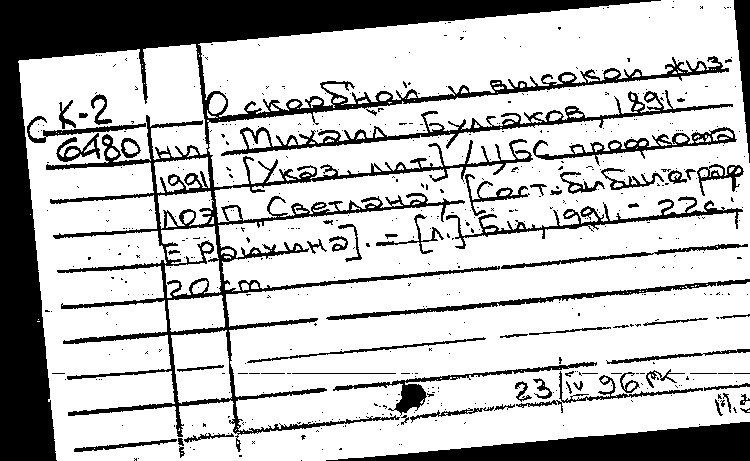 К-2 О скорбной и высокой жиз-
С 6480 ни : Михаил Булгаков, 1891-
1991 : [Указ. лит.] / ЦБС профкома
ЛОЭП "Светлана"; [Сост. библиограф
Е. Райхина]. - [Л.]: Б.и., 1991. - 22 с.;
20 см.
23/IV 96